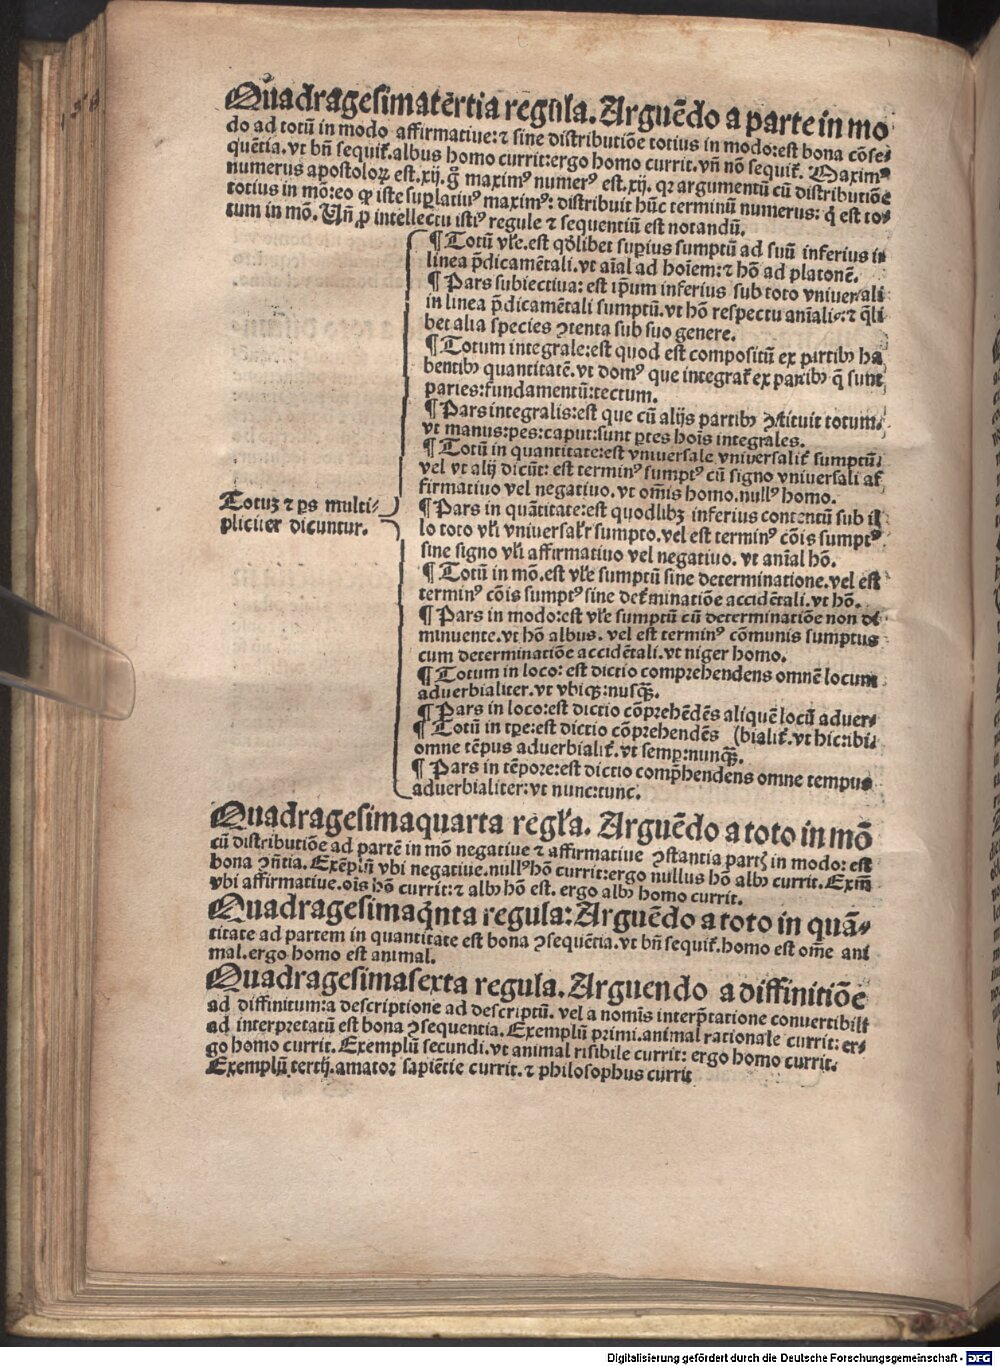 Quadragesimatertia regula. Arguẽdo a parte in mo
do ad totũ in modo affirmatiue: ⁊ sine distributiõe totius in modo: est bona cõse-
quẽtia. vt bñ sequit̃. albus homo currit: ergo homo currit. vñ nõ sequit̃. Maximꝰ
numerus apostoloꝝ est .xij. g̃ maximꝰ numerꝰ est .xij. qꝛ argumentũ cũ distributiõe
totius in mõ: eo ꝙ iste suꝑlatiuꝰ maximꝰ: distribuit hũc terminũ numerus: q̇ est to-
tum in mõ. Uñ ꝓ intellectu istiꝰ regule ⁊ sequentiũ est notandũ.
Totuꝫ ⁊ ꝑs multi-
pliciter dicuntur.
¶ Totũ vl̃e. est qđlibet suꝑius sumptũ ad suũ inferius in
linea p̃dicamẽtali. vt aĩal ad hoĩem: ⁊ hõ ad platonẽ.
¶ Pars subiectiua: est ip̃um inferius sub toto vniuersali
in linea p̃dicamẽtali sumptũ. vt hõ respectu anĩalis: ⁊ q̃li
bet alia species ꝯtenta sub suo genere.
¶ Totum integrale: est quod est compositũ ex ꝑtibꝫ ha
bentibꝫ quantitatẽ. vt domꝰ que integrat̃ ex partibꝫ q̃ sunt
paries: fundamentũ: tectum.
¶ Pars integralis: est que cũ alijs partibꝫ ꝯstituit totum.
vt manus: pes: caput: sunt ꝑtes hoĩs integrales.
¶ Totũ in quantitate: est vniuersale vniuersalit̃ sumptũ.
vel vt alij dicũt: est terminꝰ sumptꝰ cũ signo vniuersali af
firmatiuo vel negatiuo. vt om̃is homo. nullꝰ homo.
¶ Pars in quãtitate: est quodlibꝫ inferius contentũ sub il
lo toto vl̃i vniuersalr̃ sumpto. vel est terminꝰ cõis sumptꝰ
sine signo vl̃i affirmatiuo vel negatiuo. vt anĩal hõ.
¶ Totũ in mõ. est vl̃e sumptũ sine determinatione. vel est
terminꝰ cõis sumptꝰ sine det̃minatiõe accidẽtali. vt hõ.
¶ Pars in modo: est vl̃e sumptũ cũ determinatiõe non di
minuente. vt hõ albus. vel est terminꝰ cõmunis sumptus
cum determinatiõe accidẽtali. vt niger homo.
¶ Totum in loco: est dictio comprehendens omnẽ locum
aduerbialiter. vt vbiqꝫ: nusꝙ̃.
¶ Pars in loco: est dictio cõprehẽdẽs aliquẽ locũ aduer-
¶ Totũ in tꝑe: est dictio cõprehendẽs (bialit̃. vt hic: ibi.
omne tẽpus aduerbialit̃. vt semꝑ: nunꝙ̃.
¶ Pars in tẽpore: est dictio comp̃hendens omne tempus
aduerbialiter: vt nunc: tunc.
Quadragesimaquarta regl̃a. Arguẽdo a toto in mõ
cũ distributiõe ad partẽ in mõ negatiue ⁊ affirmatiue ꝯstantia partꝭ in modo: est
bona ꝯñtia. Exẽplũ vbi negatiue. nullꝰ hõ currit: ergo nullus hõ albꝰ currit. Exm̃
vbi affirmatiue. oĩs hõ currit: ⁊ albꝰ hõ est. ergo albꝰ homo currit.
Quadragesimaq̇nta regula: Arguẽdo a toto in quã-
titate ad partem in quantitate est bona ꝯsequẽtia. vt bñ sequit̃. homo est om̃e ani
mal. ergo homo est animal.
Quadragesimasexta regula. Arguendo a diffinitiõe
ad diffinitum: a descriptione ad descriptũ. vel a nomĩs interp̃tatione conuertibili
ad interpretatũ est bona ꝯsequentia. Exemplũ primi. animal rationale currit: er-
go homo currit. Exemplũ secundi. vt animal risibile currit: ergo homo currit.
Exemplũ tertij. amator sapiẽtie currit. ⁊ philosophus currit
Digitalisierung gefördert durch die Deutsche Forschungsgemeinschaft - DFG